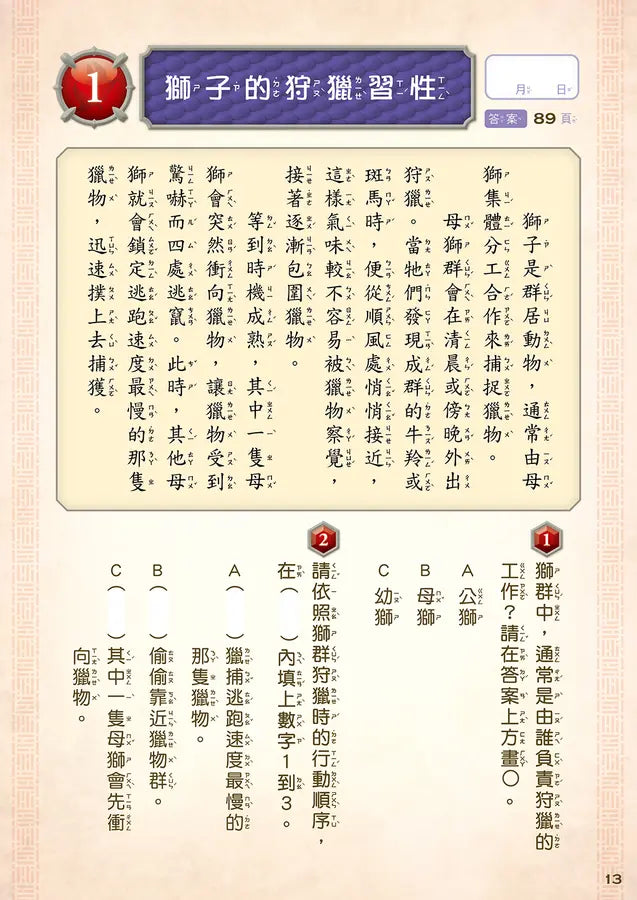 1
獅子的狩獵習性
月 日
答案 89頁
獅子是群居動物，通常由母
獅集體分工合作來捕捉獵物。
母獅群會在清晨或傍晚外出
狩獵。當牠們發現成群的牛羚或
斑馬時，便從順風處悄悄接近，
這樣氣味較不容易被獵物察覺，
接著逐漸包圍獵物。
等到時機成熟，其中一隻母
獅會突然衝向獵物，讓獵物受到
驚嚇而四處逃竄。此時，其他母
獅就會鎖定逃跑速度最慢的那隻
獵物，迅速撲上去捕獲。
1
獅群中，通常是由誰負責狩獵的
工作？請在答案上方畫○。
A 公獅
B 母獅
C 幼獅
2
請依照獅群狩獵時的行動順序，
在（ ）內填上數字1到3。
A（ ）獵捕逃跑速度最慢的
那隻獵物。
B（ ）偷偷靠近獵物群。
C（ ）其中一隻母獅會先衝
向獵物。
13